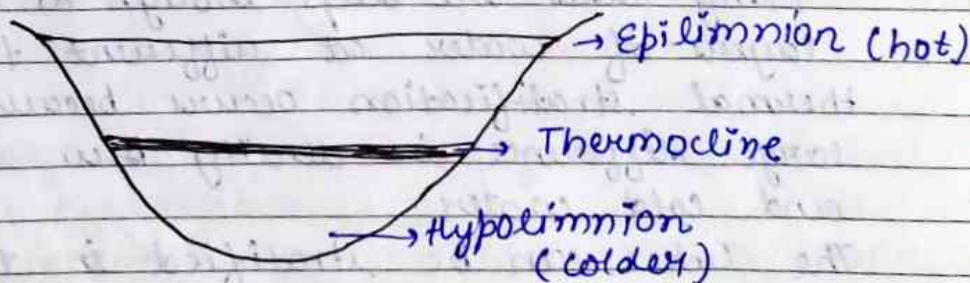 → Epilimnion (hot)
→ Thermocline
→ Hypolimnion
(colder)